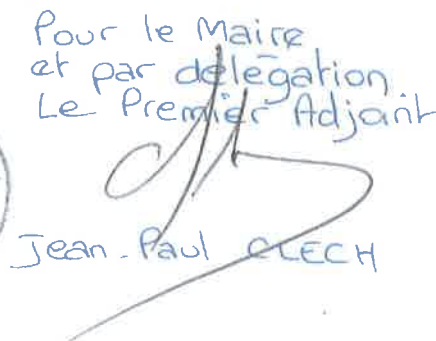 Pour le Maire
et par délégation
Le Premier Adjoint
Jean-Paul CLECH